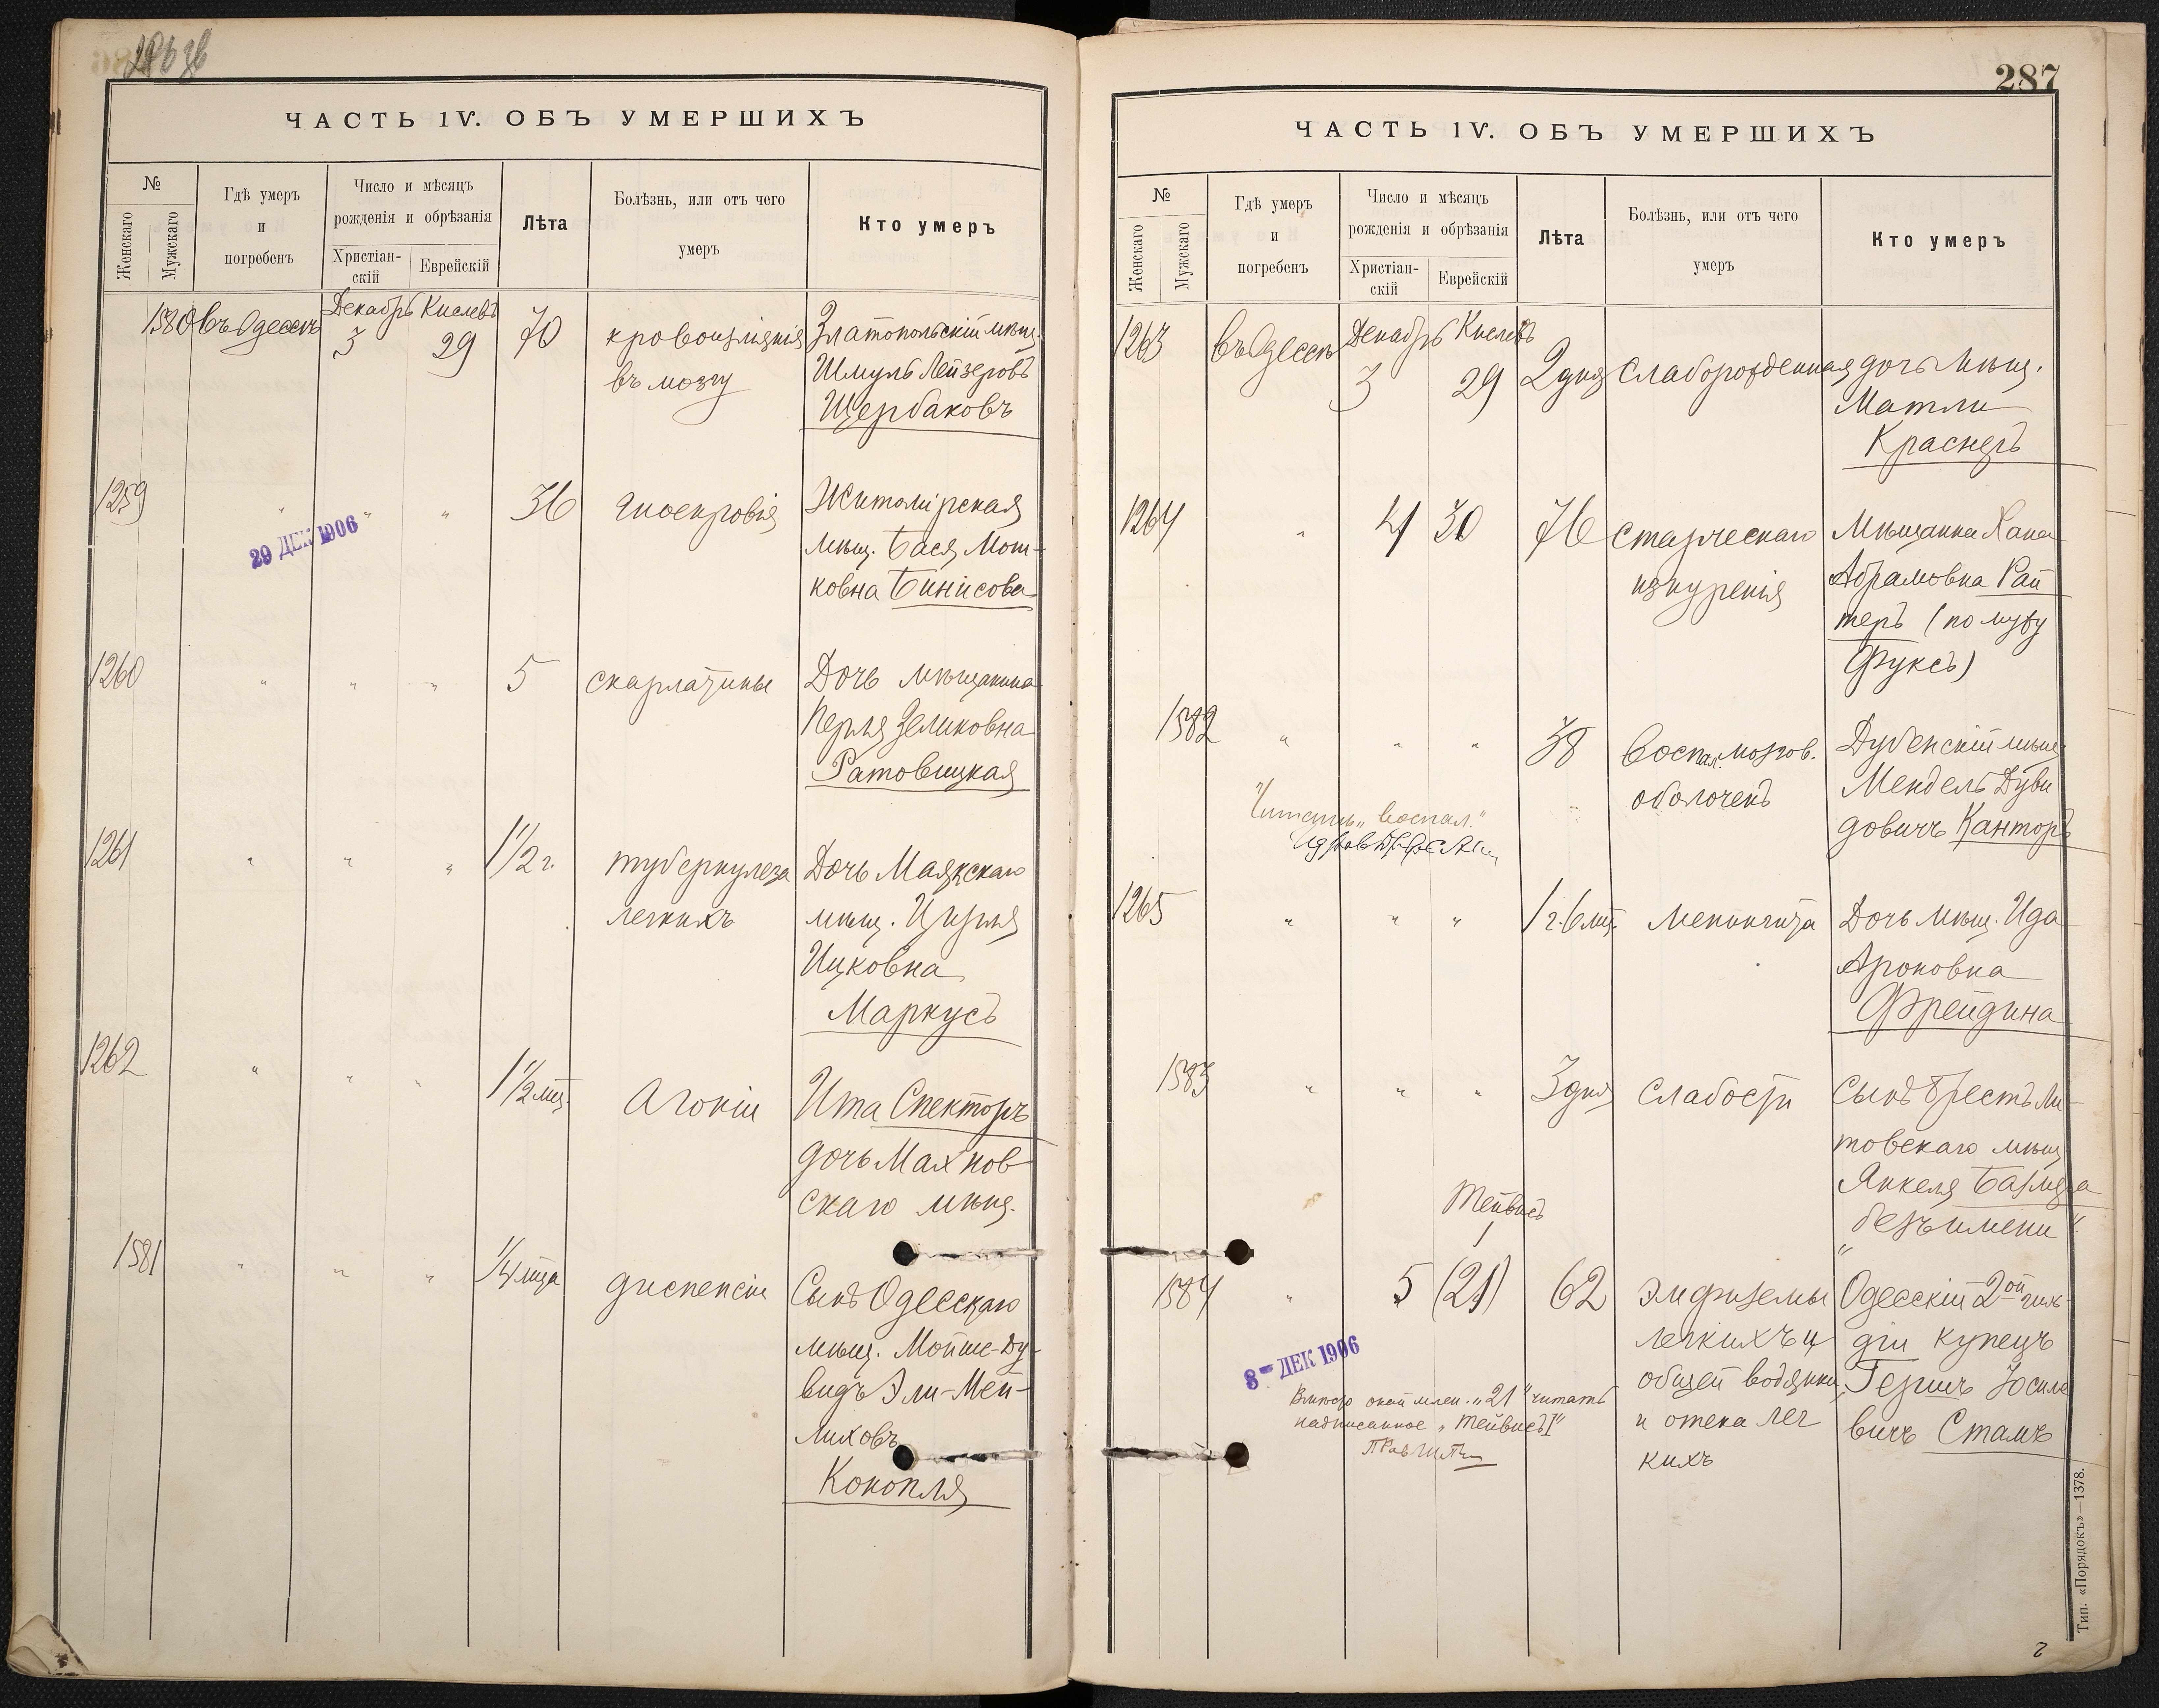 286 об
ЧАСТЬ 1V. ОБЪ УМЕРШИХЪ
№
Женскаго
Мужскаго
Гдѣ умеръ
и
погребенъ
Число и мѣсяцъ
рожденія и обрѣзанія
Христіан-
скій
Еврейскій
Лѣта
Болѣзнь, или отъ чего
умеръ
Кто умеръ
1580 въ Одессѣ Декабрь 3 Кислевъ 29 70
кровоизліянія
въ мозгу
Златопольскій мѣщ.
Шмуль Лейзеровъ
Щербаковъ
1259 " " " 36 гноекровія
29 ДЕК 1906
Житомірская
мѣщ. Бася Мош-
ковна Бинисова
1260 " " " 5 скарлатины
Дочь мѣщанина
Перля Зеликовна
Ратовицкая
1261 " " " 1 1/2 г. туберкулеза
легкихъ
Дочь Маякскаго
мѣщ. Цирля
Ицковна
Маркусъ
1262 " " " 1 1/2 мѣс. Агоніи
Ита Спекторъ
дочь Махнов-
скаго мѣщ.
1581 " " " 1/4 мѣсяца диспепсіи
Сынъ Одесскаго
мѣщ. Мойше-Ду-
видъ Эли-Мей-
лиховъ
Конопля
287
ЧАСТЬ 1V. ОБЪ УМЕРШИХЪ
№
Женскаго
Мужскаго
Гдѣ умеръ
и
погребенъ
Число и мѣсяцъ
рожденія и обрѣзанія
Христіан-
скій
Еврейскій
Лѣта
Болѣзнь, или отъ чего
умеръ
Кто умеръ
1263 въ Одессѣ Декабрь 3 Кислевъ 29 2 дня слаборожденная
дочь мѣщ.
Матли
Краснеръ
1264 " 4 30 76 старческаго
изнуренія
Мѣщанка Хана
Абрамовна Рай
теръ (по мужу
Фуксъ)
1582 " " " 38 воспал. мозгов.
оболочекъ
Дубенскій мѣщ.
Мендель Дуви
довичъ Канторъ
Читать "воспал."
1265 " " " 1 г. 6 мѣс. менингита
Дочь мѣщ. Ида
Ароновна
Фрейдина
1583 " " " 3 дня слабости
Сынъ Брестъ Ли-
товскаго мѣщ
Янкеля
"безъ имени".
Тейвисъ
1
1584 " 5 (21) 62 эмфиземы
легкихъ и
общей водянки
и отека лег
кихъ
Одесскій 2ой гиль-
діи купецъ
Гершъ Іосиле
вичъ Стамъ
8 - ДЕК 1906
Вмѣсто окаймлен. "21" читать
надписанное "Тейвисъ 1"
Тип. «Порядокъ»—1378.